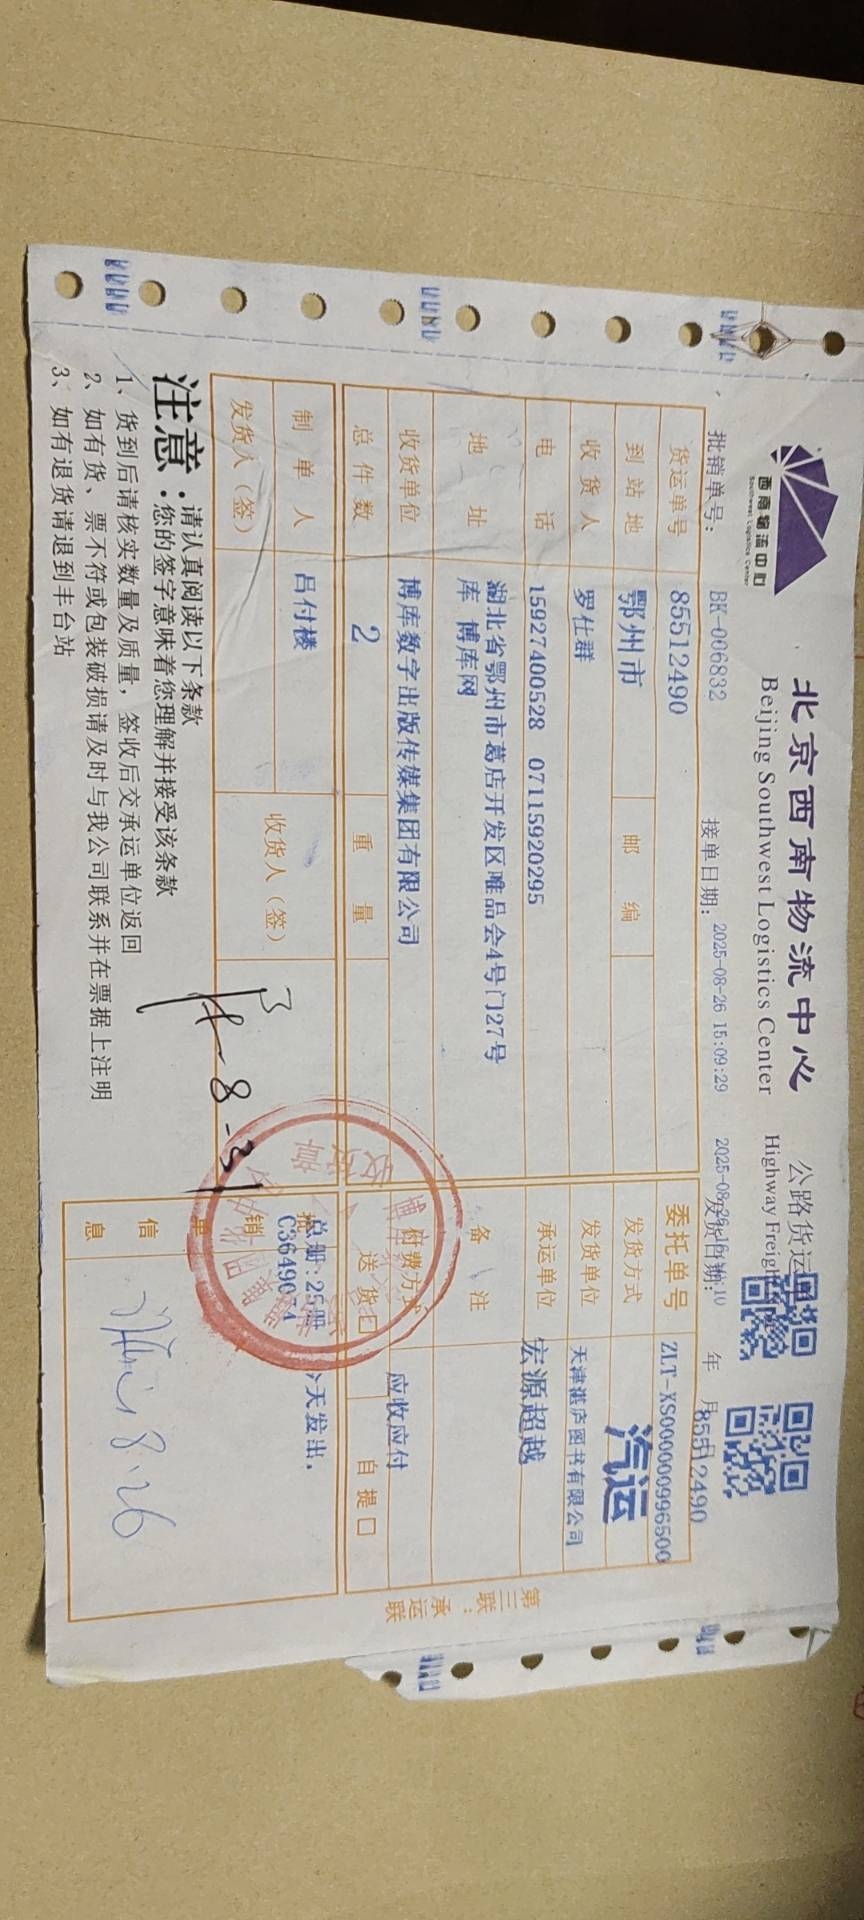 西南物流中心
Southwest Logistics Center
北京西南物流中心 公路货运单
Beijing Southwest Logistics Center Highway Freigh
批销单号: BK-006832 接单日期: 2025-08-26 15:09:29 发货日期: 年 月
85512490
货运单号 85512490 委托单号 ZLT-XS000000996500
到站地 鄂州市 邮编 发货方式 汽运
收货人 罗仕群 发货单位 天津湛庐图书有限公司
电话 15927400528 07115920295 承运单位 宏源超越
地址 湖北省鄂州市葛店开发区唯品会4号门27号
库 博库网
备注
收货单位 博库数字出版传媒集团有限公司 付费方式 应收应付
总件数 2 重量 送货口 自提口
制单人 吕付楼 收货人(签)
发货人(签)
总册:25册 今天发出,
C36490
批销单信息
8-31
8.26
收货章
注意:请认真阅读以下条款
您的签字意味着您理解并接受该条款
1、货到后请核实数量及质量,签收后交承运单位返回
2、如有货、票不符或包装破损请及时与我公司联系并在票据上注明
3、如有退货请退到丰台站
第三联:承运联